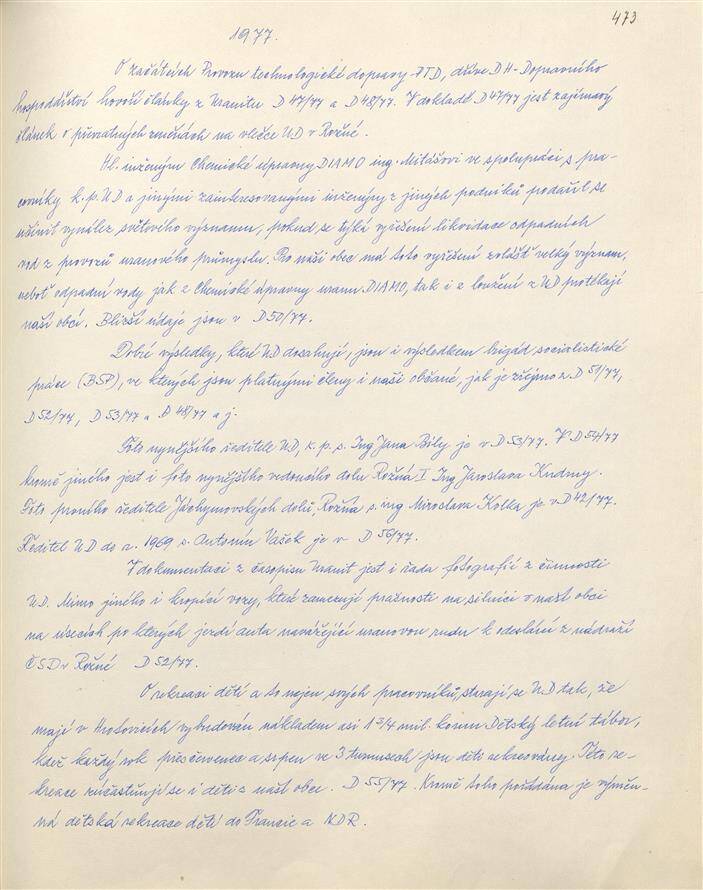 473
1977.
O začátcích Provozu technologické dopravy PTD, dříve DH-Dopravního
hospodářství hovoří články z Uranitu D 47/77 a D 48/77. V dokladě D 47/77 jest zajímavý
článek o převratných změnách na vlečce UD v Rožné.
Hl. inženýru Chemické úpravny DIAMO ing. Mitášovi ve spolupráci s pra-
covníky k.p. UD a jinými zainteresovanými inženýry z jiných podniků podařil se
učinit vynález světového významu, pokud se týká vyřešení likvidace odpadních
vod z provozů uranového průmyslu. Pro naši obec má toto vyřešení zvlášť velký význam,
neboť odpadní vody jak z Chemické úpravny uranu DIAMO, tak i z loužení z UD protékají
naší obcí. Bližší údaje jsou v D 50/77.
Dobré výsledky, které UD dosahují, jsou i výsledkem brigád socialistické
práce (BSP), ve kterých jsou platnými členy i naši občané, jak je zřejmo z D 51/77,
D 52/77, D 53/77 a D 48/77 a j.
Foto nynějšího ředitele UD, k.p. s. Ing Jana Bíly je v D 53/77. V D 54/77
kromě jiného jest i foto nynějšího vedoucího dolu Rožná I Ing Jaroslava Kudrny.
Foto prvního ředitele Jáchymovských dolů, Rožná s. ing Miroslava Kolka je v D 42/77.
Ředitel UD do r. 1969 s. Antonín Vašek je v D 56/77.
V dokumentaci z časopisu Uranit jest i řada fotografií z činnosti
UD. Mimo jiného i kropící vozy, které zamezují prašnosti na silnici v naší obci
na úsecích po kterých jezdí auta navážející uranovou rudu k odeslání z nádraží
ČSD v Rožné D 52/77.
O rekreaci dětí a to nejen svých pracovníků, starají se UD tak, že
mají v Hrotovicích vybudován nákladem asi 1 3/4 mil. korun Dětský letní tábor,
kdež každý rok přes červenec a srpen ve 3 turnusech jsou děti rekreovány. Této re-
kreace zúčastňují se i děti z naší obce. D 55/77. Kromě toho pořádána je výměn-
ná dětská rekreace dětí do Francie a NDR.